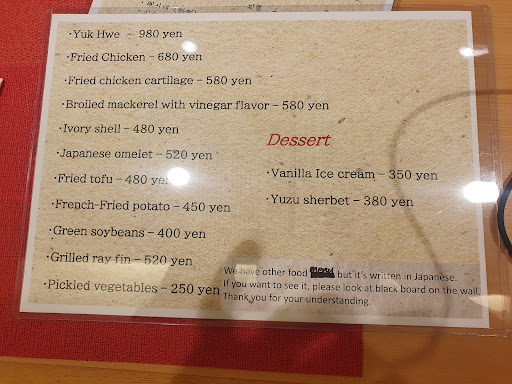 ·Yuk Hwe – 980 yen
·Fried Chicken – 680 yen
·Fried chicken cartilage – 580 yen
·Broiled mackerel with vinegar flavor – 580 yen
·Ivory shell – 480 yen
·Japanese omelet – 520 yen
·Fried tofu – 480 yen
·French-Fried potato – 450 yen
·Green soybeans – 400 yen
·Grilled ray fin – 520 yen
·Pickled vegetables – 250 yen
Dessert
·Vanilla Ice cream – 350 yen
·Yuzu sherbet – 380 yen
We have other food but it's written in Japanese.
If you want to see it, please look at black board on the wall.
Thank you for your understanding.